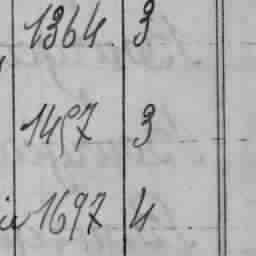 1364 3
1457 3
1697 4